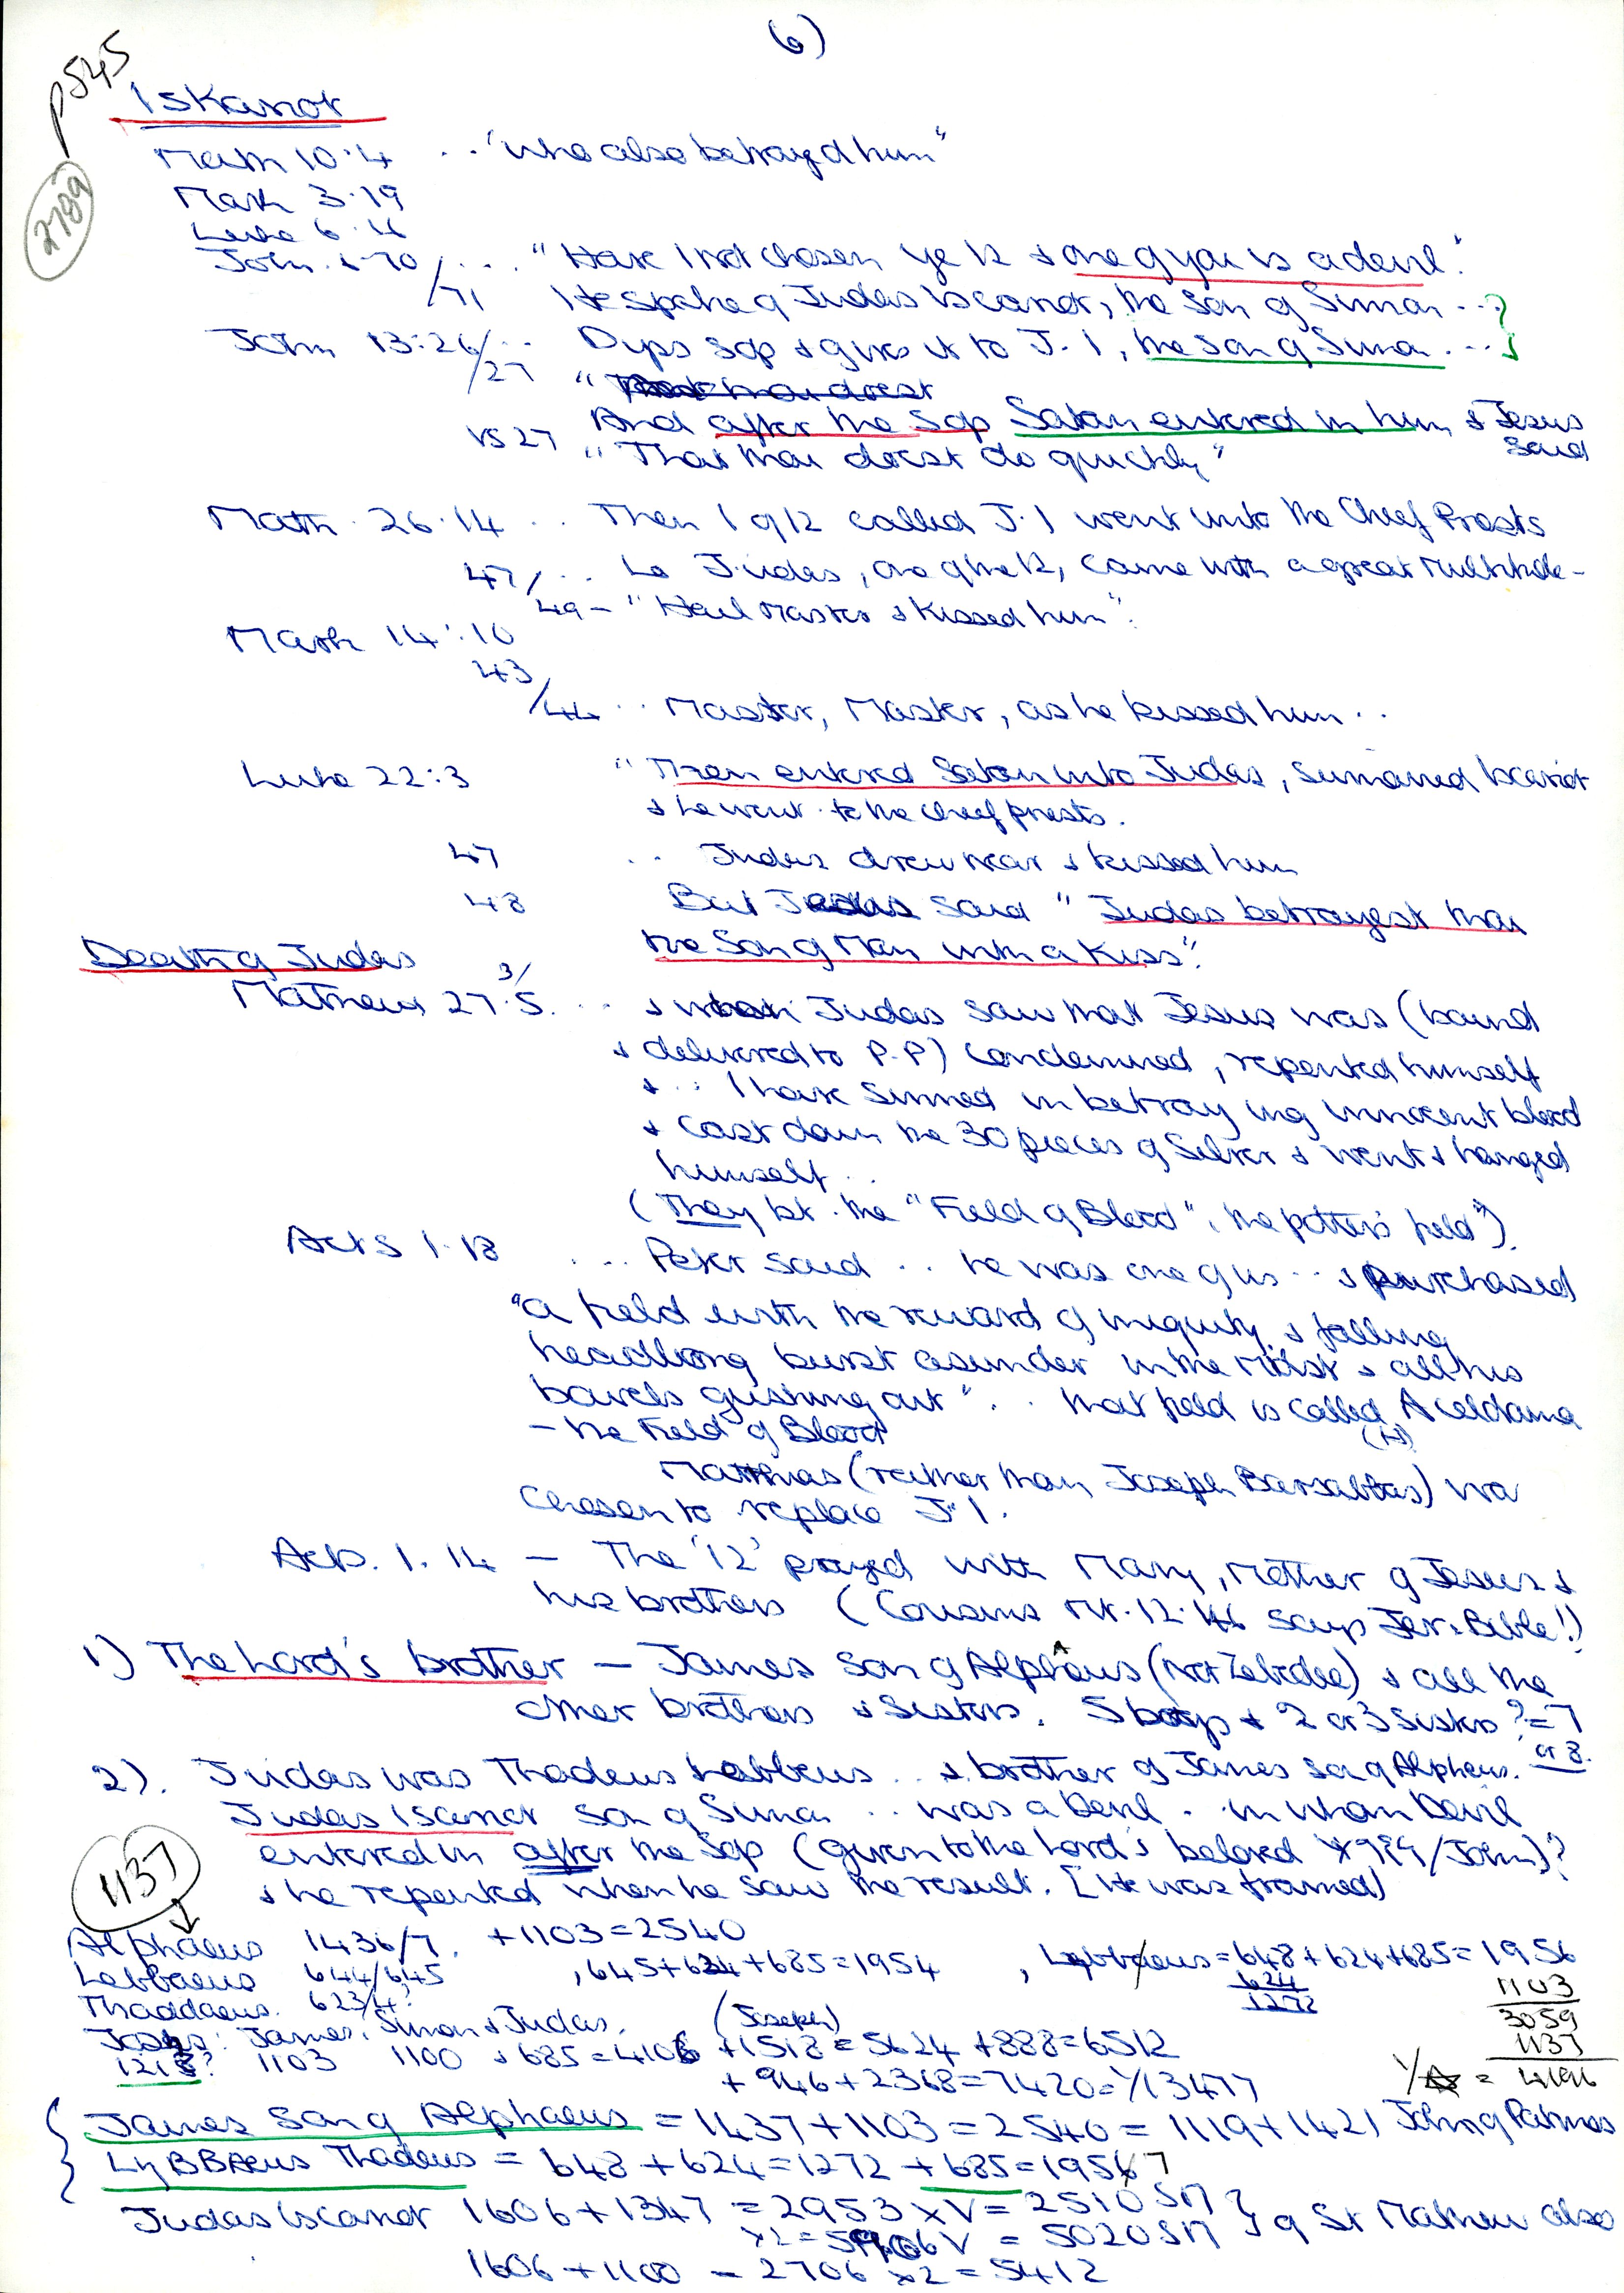 6)
p545
2789
Iskariot
Math 10.4 .. "who also betrayed him"
Mark 3.19
Luke 6.16
John. 6.70 /... "Have I not chosen ye 12 & one of you is a devil."
/71 He spake of Judas Iscariot, the son of Simon ...?
John 13:26/.. Dips sop & gives it to J.I, the son of Simon ...
/27 "
vs 27 And after the Sop Satan entered in him & Jesus said
"That thou doest do quickly"
Math. 26.14 .. Then 1 of 12 called J.I went unto the Chief Priests
47/... Lo Judas, one of the 12, came with a great multitude -
49 - "Hail Master & kissed him".
Mark 14:10
43
/44 .. Master, Master, as he kissed him ..
Luke 22:3 "Then entered Satan into Judas, surnamed Iscariot
& he went to the chief priests.
47 .. Judas drew near & kissed him
48 But Jesus said "Judas betrayest thou
the Son of Man with a kiss".
Death of Judas
Mathew 27.3/5. ... & when Judas saw that Jesus was (bound
& delivered to P.P) condemned, repented himself
& .. I have sinned in betraying innocent blood
& cast down the 30 pieces of Silver & went & hanged
himself..
(They bt. the "Field of Blood", "the potter's field").
Acts 1.18 ... Peter said .. he was one of us .. & purchased
"a field with the reward of iniquity & falling
headlong burst asunder in the midst & all his
bowels gushing out". .. that field is called Aceldama
- the Field of Blood
Matthias (rather than Joseph Barsabbas) was
chosen to replace J.I.
Acts. 1.14 - The '12' prayed with Mary, Mother of Jesus &
his brothers (Cousins Mt.12.46 says Jer. Bible!)
1) The Lord's brother - James son of Alphaeus (not Zebidee) & all the
other brothers & Sisters. 5 boys & 2 or 3 sisters ? = 7
or 8.
2). Judas was Thadeus Lebbeus .. & brother of James son of Alpheus.
Judas Iscariot son of Simon .. was a Devil. in whom Devil
entered in after the Sop (given to the Lord's beloved /John)?
& he repented when he saw the result. [He was framed]
1137
Alphaeus 1436/7. +1103=2540
Lebbaeus 644/645 , 645+624+685=1954 , Lebbaeus = 648+624+685=1956
624
1272
1103
3059
1137
4196
Thaddaeus. 623/4?
Joses: James, Simon & Judas. (Joseph)
1218? 1103 1100 & 685=4106 +1518=5624 +888=6512
+946+2368=7420=
James Son of Alphaeus = 1137+1103=2540=1119+1421 John of Patmos
LHBBAeus Thadeus = 648+624=1272+685=1957
Judas Iscariot 1606+1347=2953 x V=2510 SM } of St Mathew also
x2=5906 V = 5020 SM
1606+1100 = 2706 x2=5412